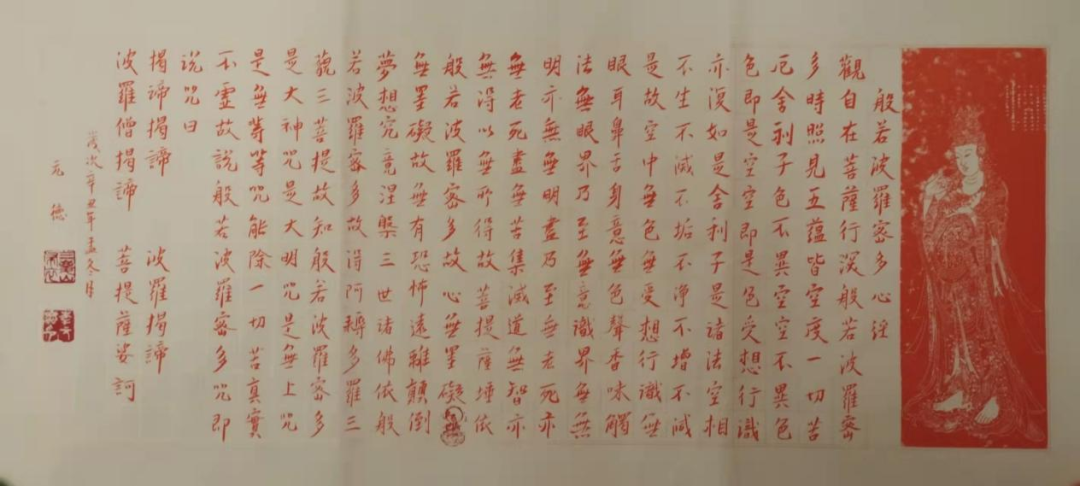 般若波羅密多心経
觀自在菩薩行深般若波羅密
多時照見五蕴皆空度一切苦
厄舍利子色不異空空不異色
色即是空空即是色受想行識
亦復如是舍利子是諸法空相
不生不滅不垢不净不增不減
是故空中無色無受想行識無
眼耳鼻舌身意無色聲香味觸
法無眼界乃至無意識界無無
明亦無無明盡乃至無老死亦
無老死盡無苦集滅道無智亦
無得以無所得故菩提薩埵依
般若波羅密多故心無罣礙
無罣礙故無有恐怖遠離顛倒
夢想究竟涅槃三世諸佛依般
若波羅密多故得阿耨多羅三
藐三菩提故知般若波羅密多
是大神咒是大明咒是無上咒
是無等等咒能除一切苦真實
不虚故説般若波羅密多咒即
説咒曰
揭諦揭諦 波羅揭諦
波羅僧揭諦 菩提薩婆訶
歲次辛丑年孟冬月
元德